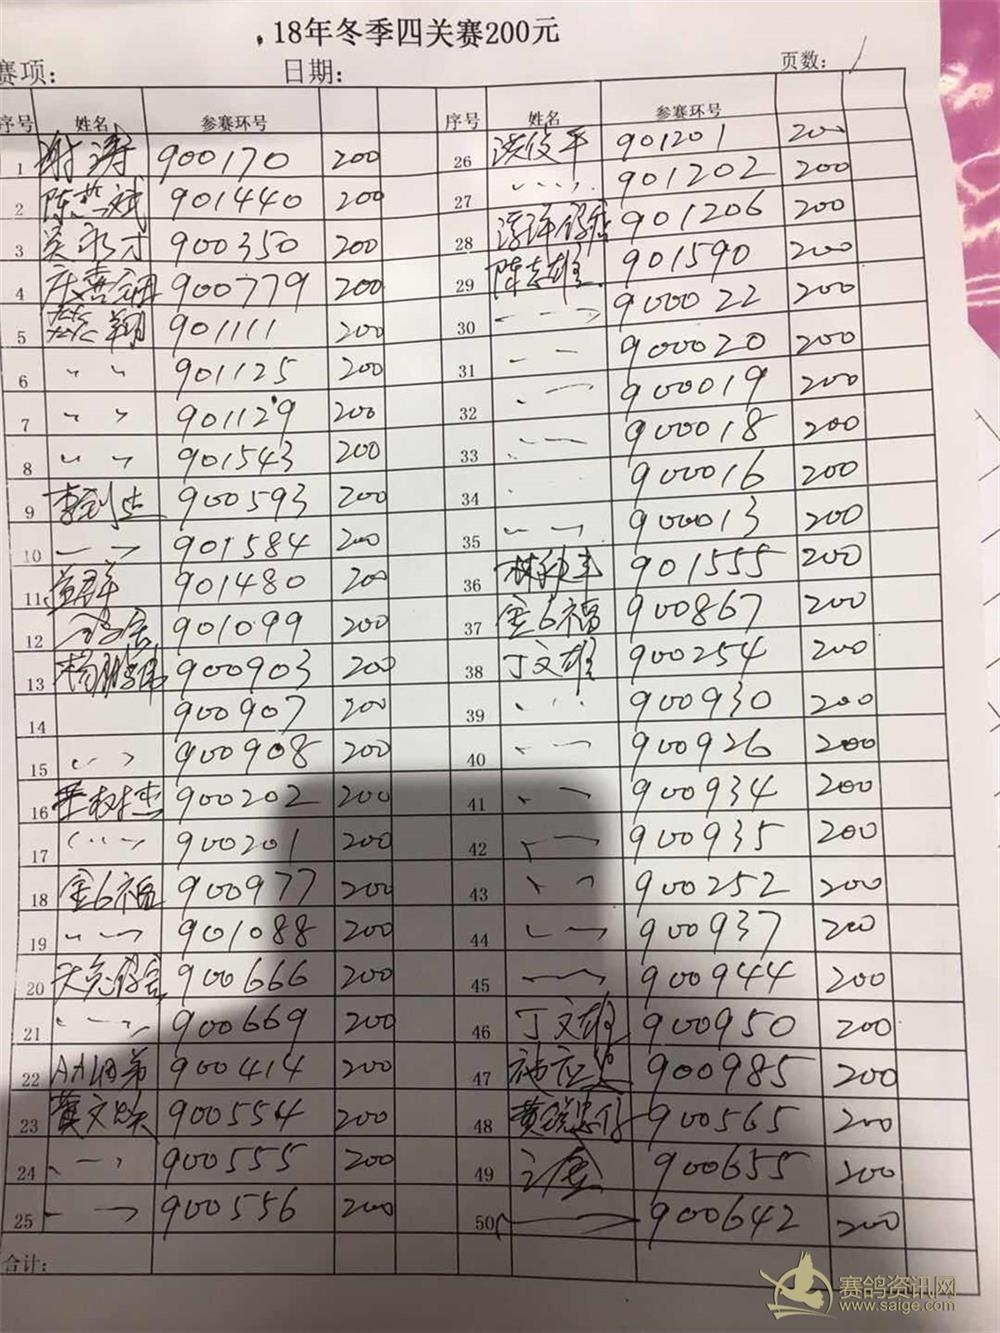 18年冬季四关赛200元
赛项: 日期: 页数: 1
序号 姓名 参赛环号 序号 姓名 参赛环号
1 谢涛 900170 200 26 洪俊平 901201 200
2 901440 200 27 〃 901202 200
3 900350 200 28 901206 200
4 900779 200 29 陈志雄 901590 200
5 蔡翔 901111 200 30 〃 900022 200
6 〃 901125 200 31 〃 900020 200
7 〃 901129 200 32 〃 900019 200
8 〃 901543 200 33 〃 900018 200
9 900593 200 34 〃 900016 200
10 〃 901584 200 35 〃 900013 200
11 901480 200 36 901555 200
12 901099 200 37 金6福 900867 200
13 杨鹏伟 900903 200 38 丁文雄 900254 200
14 900907 200 39 〃 900930 200
15 〃 900908 200 40 〃 900926 200
16 900202 200 41 〃 900934 200
17 〃 900201 200 42 〃 900935 200
18 金6福 900977 200 43 〃 900252 200
19 〃 901088 200 44 〃 900937 200
20 900666 200 45 〃 900944 200
21 〃 900669 200 46 丁文雄 900950 200
22 900414 200 47 900985 200
23 黄文焕 900554 200 48 900565 200
24 〃 900555 200 49 900655 200
25 〃 900556 200 50 〃 900642 200
合计:
赛鸽资讯网
www.saige.com